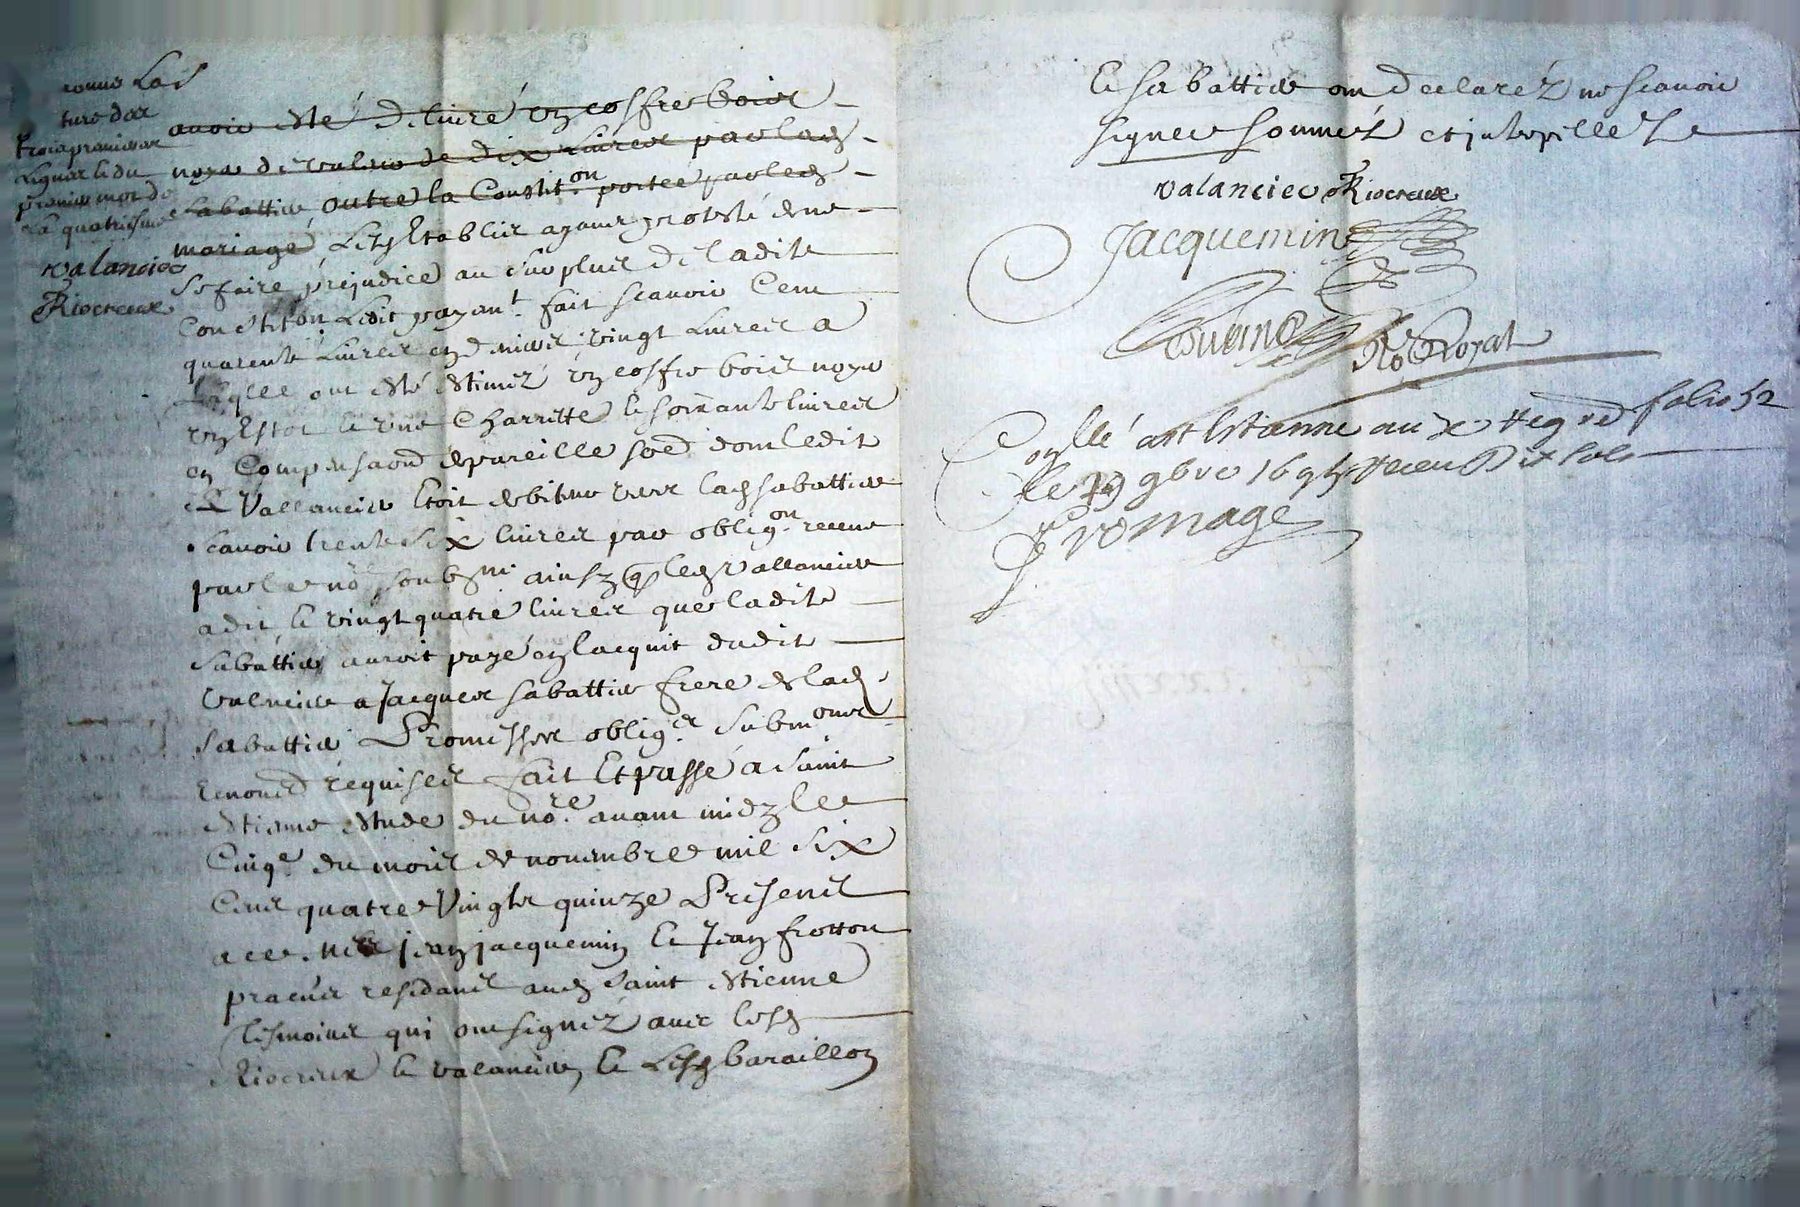 ture des
trois premieres
lignes et du
premier mot de
la quatriesme
valancier
Riocreux
avoir esté delivré un coffre bois
noyer de valeur de dix livres par lad.
Sabattier outre la Constit.on portée par led.
mariage, Lesd Establies ayant protesté de ne
se faire prejudice au surplus de ladite
Constit.on Ledit payant fait scavoir Cent
quarente livres en deniers vingt Livres a
Laqlle ont esté estimez un coffre bois noyer
un Estoc et une Charrette et soixante livres
en Compensaon de pareille so.e dont ledit
Vallancier Etoit debiteur vers lad Sabattier
scavoir trente six livres par oblig.on receue
par le no.re soub.né ainsy q. led Vallancier
a dit, et vingt quatre livres que ladite
Sabattier auroit payé en lacquit dudit
Valancier a Jacques Sabattier frere de lad.
Sabattier Promisses oblig.es Subm.ons
Renon.ons requises fait Et passé a saint
Estienne estude du no.re avant midy le
Cinq.e du mois de novembre mil six
Cens quatre Vingts quinze Presens
a ce jean jacquemin et Jean frotton
residans aud Saint Estienne
tesmoins qui ont signéz avec lesd
Riocreux et valancier, et Lesd baraillon
et Sabattier ont declaréz ne scavoir
signer de sommés et interpellés
valancier Riocreux
Jacquemin
No.re Royal
Conllé a St Estienne au x.e Reg re folio 52
le 19 9bre 1695 Receu Dix sols
fromage